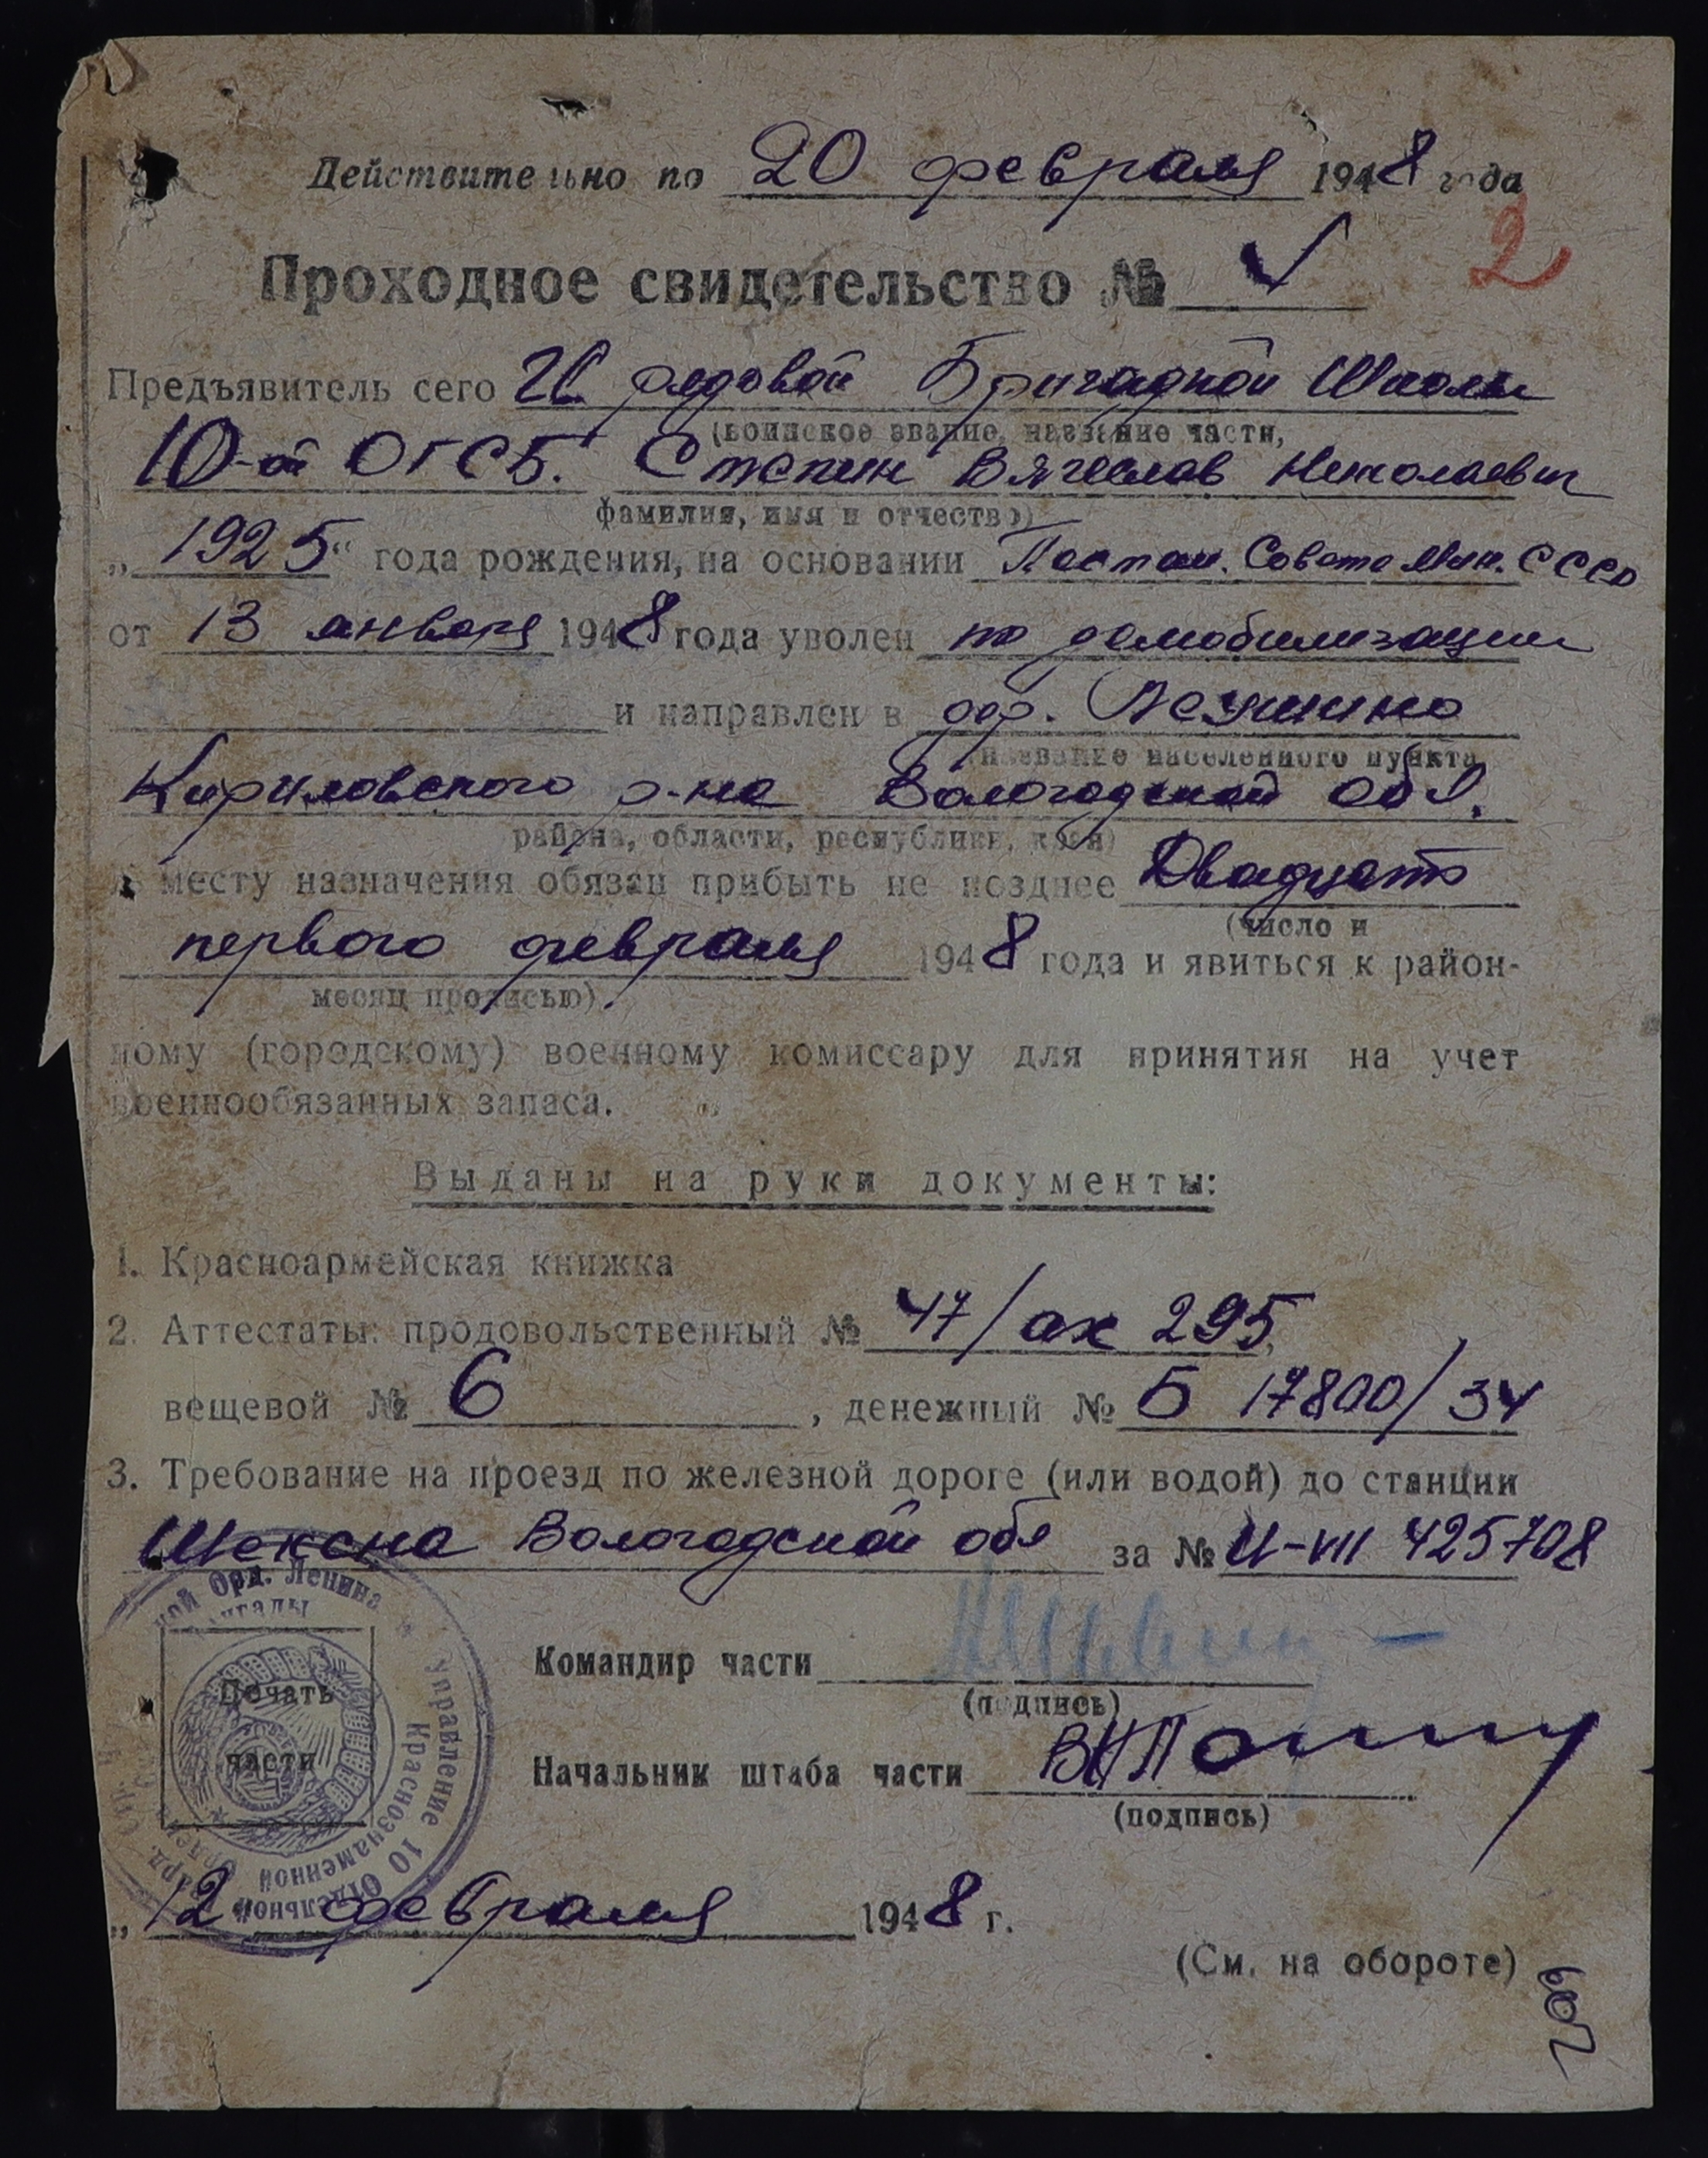 Действительно по 20 февраля 1948 года
2
Проходное свидетельство №
Предъявитель сего Гв. рядовой Бригадной Школы
(воинское звание, название части,
10-ой ОГСБ. Степин Вячеслав Николаевич
фамилия, имя и отчество)
„ 1925 “ года рождения, на основании Постан. Совета Мин. СССР
от 13 января 1948 года уволен по демобилизации
и направлен в дер.
название населенного пункта,
Кириловского р-на Вологодской обл.
района, области, республики, края)
К месту назначения обязан прибыть не позднее Двадцать
(число и
первого февраля 1948 года и явиться к район-
месяц прописью)
ному (городскому) военному комиссару для принятия на учет
военнообязанных запаса.
Выданы на руки документы:
1. Красноармейская книжка
2. Аттестаты: продовольственный № 47/ах 295,
вещевой № 6, денежный № Б 17800/34
3. Требование на проезд по железной дороге (или водой) до станции
Шексна Вологодской обл за № И-VIII 425708
Командир части
(подпись)
Начальник штаба части
(подпись)
Печать
части
Управление 10 Отдельной
Краснознаменной
Орд. Ленина
„ 12 “ февраля 1948 г.
(См. на обороте)